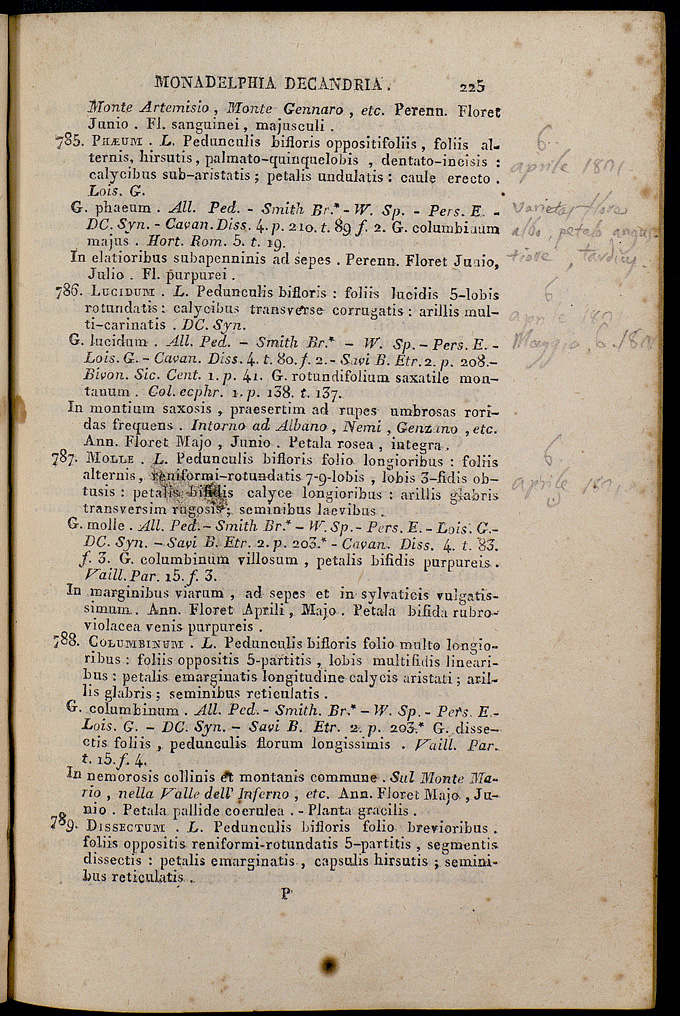 MONADELPHIA DECANDRIA . 225
Monte Artemisio , Monte Gennaro , etc. Perenn. Floret
Junio . Fl. sanguinei , majusculi .
785. PHÆUM . L. Pedunculis bifloris oppositifoliis , foliis al-
ternis, hirsutis , palmato-quinquelobis , dentato-incisis :
calycibus sub-aristatis ; petalis undulatis : caule erecto .
Lois. G.
G. phaeum . All. Ped. - Smith Br.* - W. Sp. - Pers. E. -
DC. Syn. - Cavan. Diss. 4. p. 210. t. 89 f. 2. G. columbinum
majus . Hort. Rom. 5. t. 19.
In elatioribus subapenninis ad sepes . Perenn. Floret Junio,
Julio . Fl. purpurei .
786. LUCIDUM . L. Pedunculis bifloris : foliis lucidis 5-lobis
rotundatis : calycibus transverse corrugatis : arillis mul-
ti-carinatis . DC. Syn.
G. lucidum . All. Ped. - Smith Br.* - W. Sp. - Pers. E. -
Lois. G. - Cavan. Diss. 4. t. 80. f. 2. - Savi B. Etr. 2. p. 208.-
Bivon. Sic. Cent. 1. p. 41. G. rotundifolium saxatile mon-
tanum . Col. ecphr. 1. p. 138. t. 137.
In montium saxosis , praesertim ad rupes umbrosas rori-
das frequens . Intorno ad Albano , Nemi , Genzano , etc.
Ann. Floret Majo , Junio . Petala rosea , integra .
787. MOLLE . L. Pedunculis bifloris folio longioribus : foliis
alternis , reniformi-rotundatis 7-9-lobis , lobis 3-fidis ob-
tusis : petalis bifidis calyce longioribus : arillis glabris
transversim rugosis ; seminibus laevibus .
G. molle . All. Ped. - Smith Br.* - W. Sp. - Pers. E. - Lois. G.-
DC. Syn. - Savi B. Etr. 2. p. 203.* - Cavan. Diss. 4. t. 83.
f. 3. G. columbinum villosum , petalis bifidis purpureis .
Vaill. Par. 15. f. 3.
In marginibus viarum , ad sepes et in sylvaticis vulgatis-
simum . Ann. Floret Aprili , Majo . Petala bifida rubro-
violacea venis purpureis .
788. COLUMBINUM . L. Pedunculis bifloris folio multo longio-
ribus : foliis oppositis 5-partitis , lobis multifidis lineari-
bus : petalis emarginatis longitudine calycis aristati ; aril-
lis glabris ; seminibus reticulatis .
G. columbinum . All. Ped. - Smith. Br.* - W. Sp. - Pers. E.-
Lois. G. - DC. Syn. - Savi B. Etr. 2. p. 203.* G. disse-
ctis foliis , pedunculis florum longissimis . Vaill. Par.
t. 15. f. 4.
In nemorosis collinis et montanis commune . Sul Monte Ma-
rio , nella Valle dell' Inferno , etc. Ann. Floret Majo , Ju-
nio . Petala pallide coerulea . - Planta gracilis .
789. DISSECTUM . L. Pedunculis bifloris folio brevioribus .
foliis oppositis reniformi-rotundatis 5-partitis , segmentis
dissectis : petalis emarginatis , capsulis hirsutis ; semini-
bus reticulatis .
P
6.
aprile 1871.
varietas flore
albo, petalo angus
tiore
6.
aprile 1871.
Maggio 6.
6.
aprile 1871.